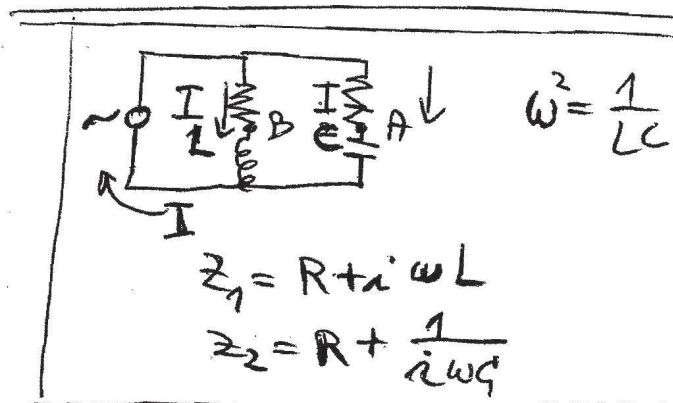 ~ I L B I C A ω² = 1/LC
I
Z₁ = R + i ω L
Z₂ = R + 1/(i ω C)